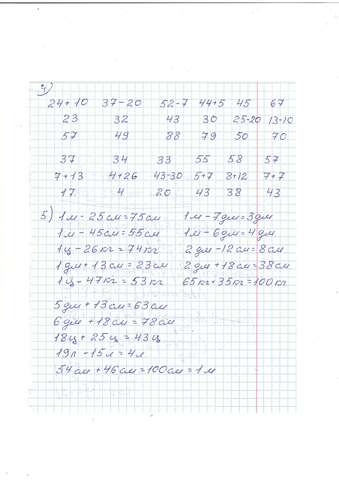 4)
24+10 37-20 52-7 44+5 45 67
23 32 43 30 25+20 13+10
57 49 88 79 50 70
37 34 33 55 58 57
7+13 4+26 43-30 5+7 8+12 7+7
17 4 20 43 38 43
5) 1м-25см=75см 1м-7дм=3дм
1м-45см=55см 1м-6дм=4дм
1ц-26кг=74кг 2дм-12см=8см
1дм+13см=23см 2дм+18см=38см
1ц-47кг=53кг 65кг+35кг=100кг
5дм+13см=63см
6дм+18см=78см
18ц+25ц=43ц
19л-15л=4л
54см+46см=100см=1м